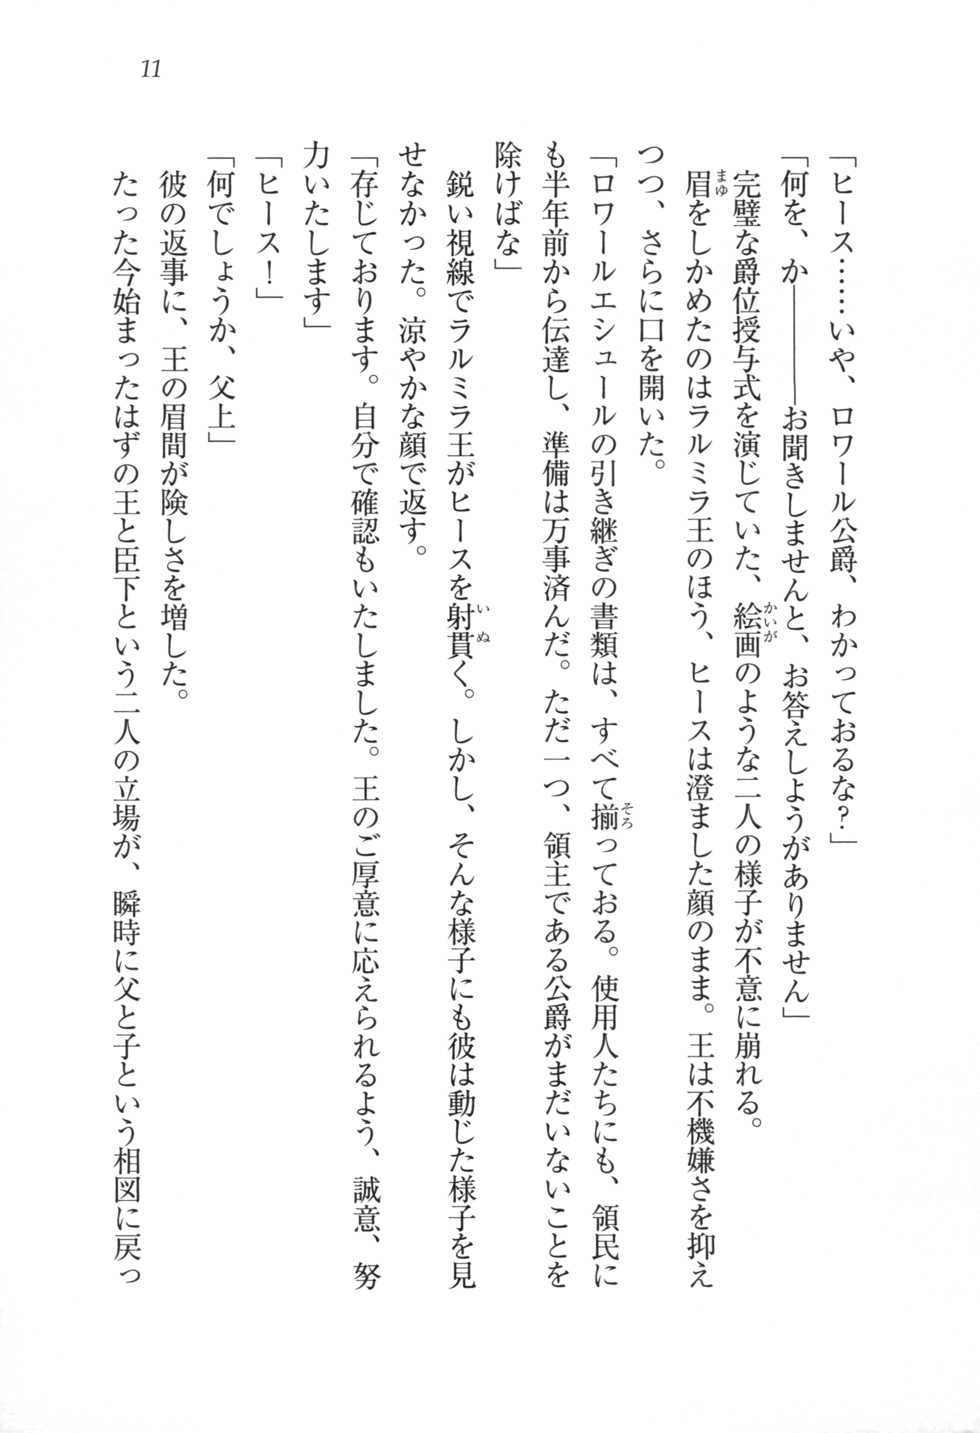 11
「ヒース……いや、ロワール公爵、わかっておるな?」
「何を、か――――お聞きしませんと、お答えしようがありません」
完璧な爵位授与式を演じていた、絵画のような二人の様子が不意に崩れる。
眉をしかめたのはラルミラ王のほう、ヒースは澄ました顔のまま。王は不機嫌さを抑え
つつ、さらに口を開いた。
「ロワールエシュールの引き継ぎの書類は、すべて揃っておる。使用人たちにも、領民に
も半年前から伝達し、準備は万事済んだ。ただ一つ、領主である公爵がまだいないことを
除けばな」
鋭い視線でラルミラ王がヒースを射貫く。しかし、そんな様子にも彼は動じた様子を見
せなかった。涼やかな顔で返す。
「存じております。自分で確認もいたしました。王のご厚意に応えられるよう、誠意、努
力いたします」
「ヒース!」
「何でしょうか、父上」
彼の返事に、王の眉間が険しさを増した。
たった今始まったはずの王と臣下という二人の立場が、瞬時に父と子という相図に戻っ